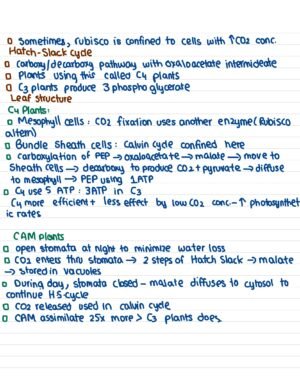 ▫ Sometimes, rubisco is confined to cells with ↑CO2 conc.
Hatch-Slack cycle
▫ Carboxy/decarboxy pathway with oxaloacetate intermideate
▫ Plants using this called C4 plants
▫ C3 plants produce 3 phospho glycerate
Leaf structure
C4 Plants:
▫ Mesophyll cells: CO2 fixation uses another enzyme (Rubisco
altern)
▫ Bundle Sheath cells: Calvin cycle confined here
▫ carboxylation of PEP → oxaloacetate → malate → move to
Sheath cells → decarboxy to produce CO2 + pyruvate → diffuse
to mesophyll → PEP using 1ATP
▫ C4 use 5 ATP : 3ATP in C3
C4 more efficient + less effect by low CO2 conc - ↑ photosynthet
ic rates
CAM plants
▫ open stomata at night to minimize water loss
▫ CO2 enters thru stomata → 2 steps of Hatch Slack → malate
→ stored in vacuoles
▫ During day, stomata closed - malate diffuses to cytosol to
continue HS cycle
▫ CO2 released used in calvin cycle
▫ CAM assimilate 25x more > C3 plants does